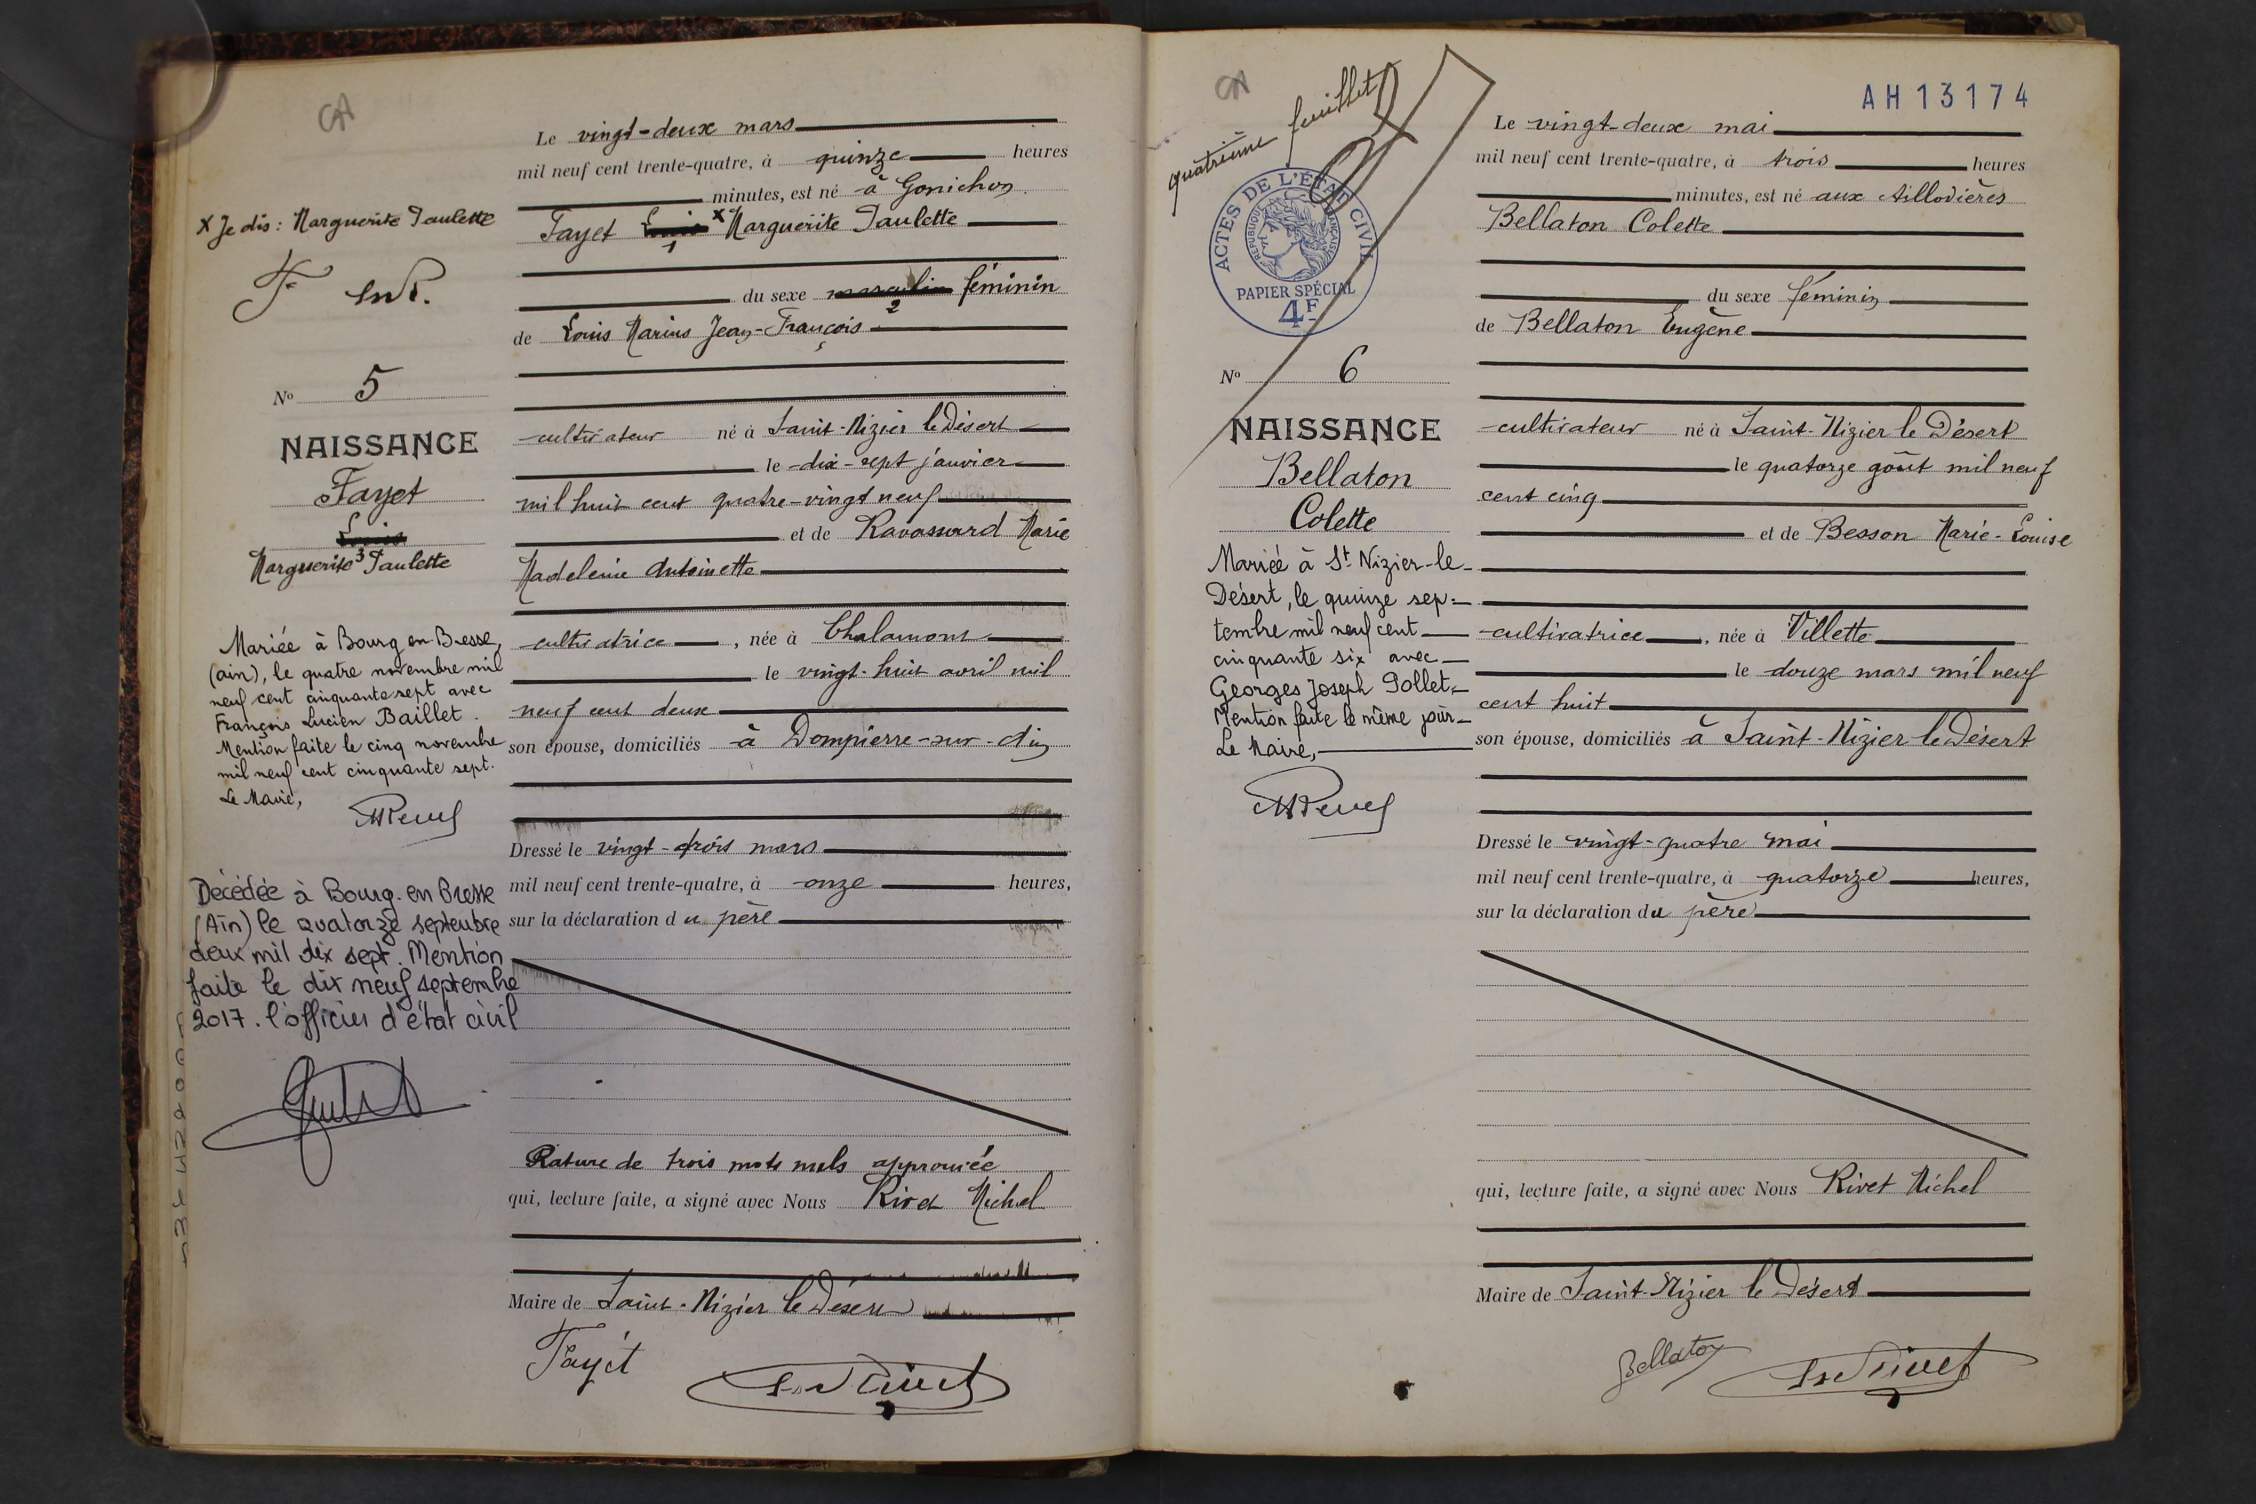 CA
Le vingt-deux mars
mil neuf cent trente-quatre, à quinze heures
minutes, est né à Gonichon
X Je dis : Marguerite Paulette
Fayet Louis X Marguerite Paulette
1
du sexe masculin féminin
2
de Louis Marius Jean-François
No 5
NAISSANCE
Fayet
Louis
Marguerite 3 Paulette
cultivateur né à Saint-Nizier le Désert
le dix-sept janvier
mil huit cent quatre-vingt neuf
et de Ravassard Marie
Madeleine Antoinette
cultivatrice, née à Chalamont
le vingt-huit avril mil
neuf cent deux
son épouse, domiciliés à Dompierre-sur-Ain
Mariée à Bourg en Bresse,
(ain), le quatre novembre mil
neuf cent cinquante sept avec
François Lucien Baillet.
Mention faite le cinq novembre
mil neuf cent cinquante sept.
Le Maire,
Décédée à Bourg-en Bresse
(Ain) le quatorze septembre
deux mil dix sept. Mention
faite le dix neuf septembre
2017. l'officier d'état civil
Dressé le vingt-trois mars
mil neuf cent trente-quatre, à onze heures,
sur la déclaration du père
Rature de trois mots nuls approuvée
qui, lecture faite, a signé avec Nous Rivet Michel
Maire de Saint-Nizier le Désert
Fayet
CA
quatrième feuillet
AH13174
ACTES DE L'ÉTAT CIVIL
RÉPUBLIQUE FRANÇAISE
PAPIER SPÉCIAL
4F
Le vingt-deux mai
mil neuf cent trente-quatre, à trois heures
minutes, est né aux Aillovières
Bellaton Colette
du sexe féminin
de Bellaton Eugène
No 6
NAISSANCE
Bellaton
Colette
cultivateur né à Saint-Nizier le Désert
le quatorze août mil neuf
cent cinq
et de Besson Marie-Louise
cultivatrice, née à Villette
le douze mars mil neuf
cent huit
son épouse, domiciliés à Saint-Nizier le Désert
Mariée à St Nizier-le-
Désert, le quinze sep-
tembre mil neuf cent
cinquante six avec
Georges Joseph Pollet.
Mention faite le même jour
Le Maire,
Dressé le vingt-quatre mai
mil neuf cent trente-quatre, à quatorze heures,
sur la déclaration du père
qui, lecture faite, a signé avec Nous Rivet Michel
Maire de Saint-Nizier le Désert
Bellaton